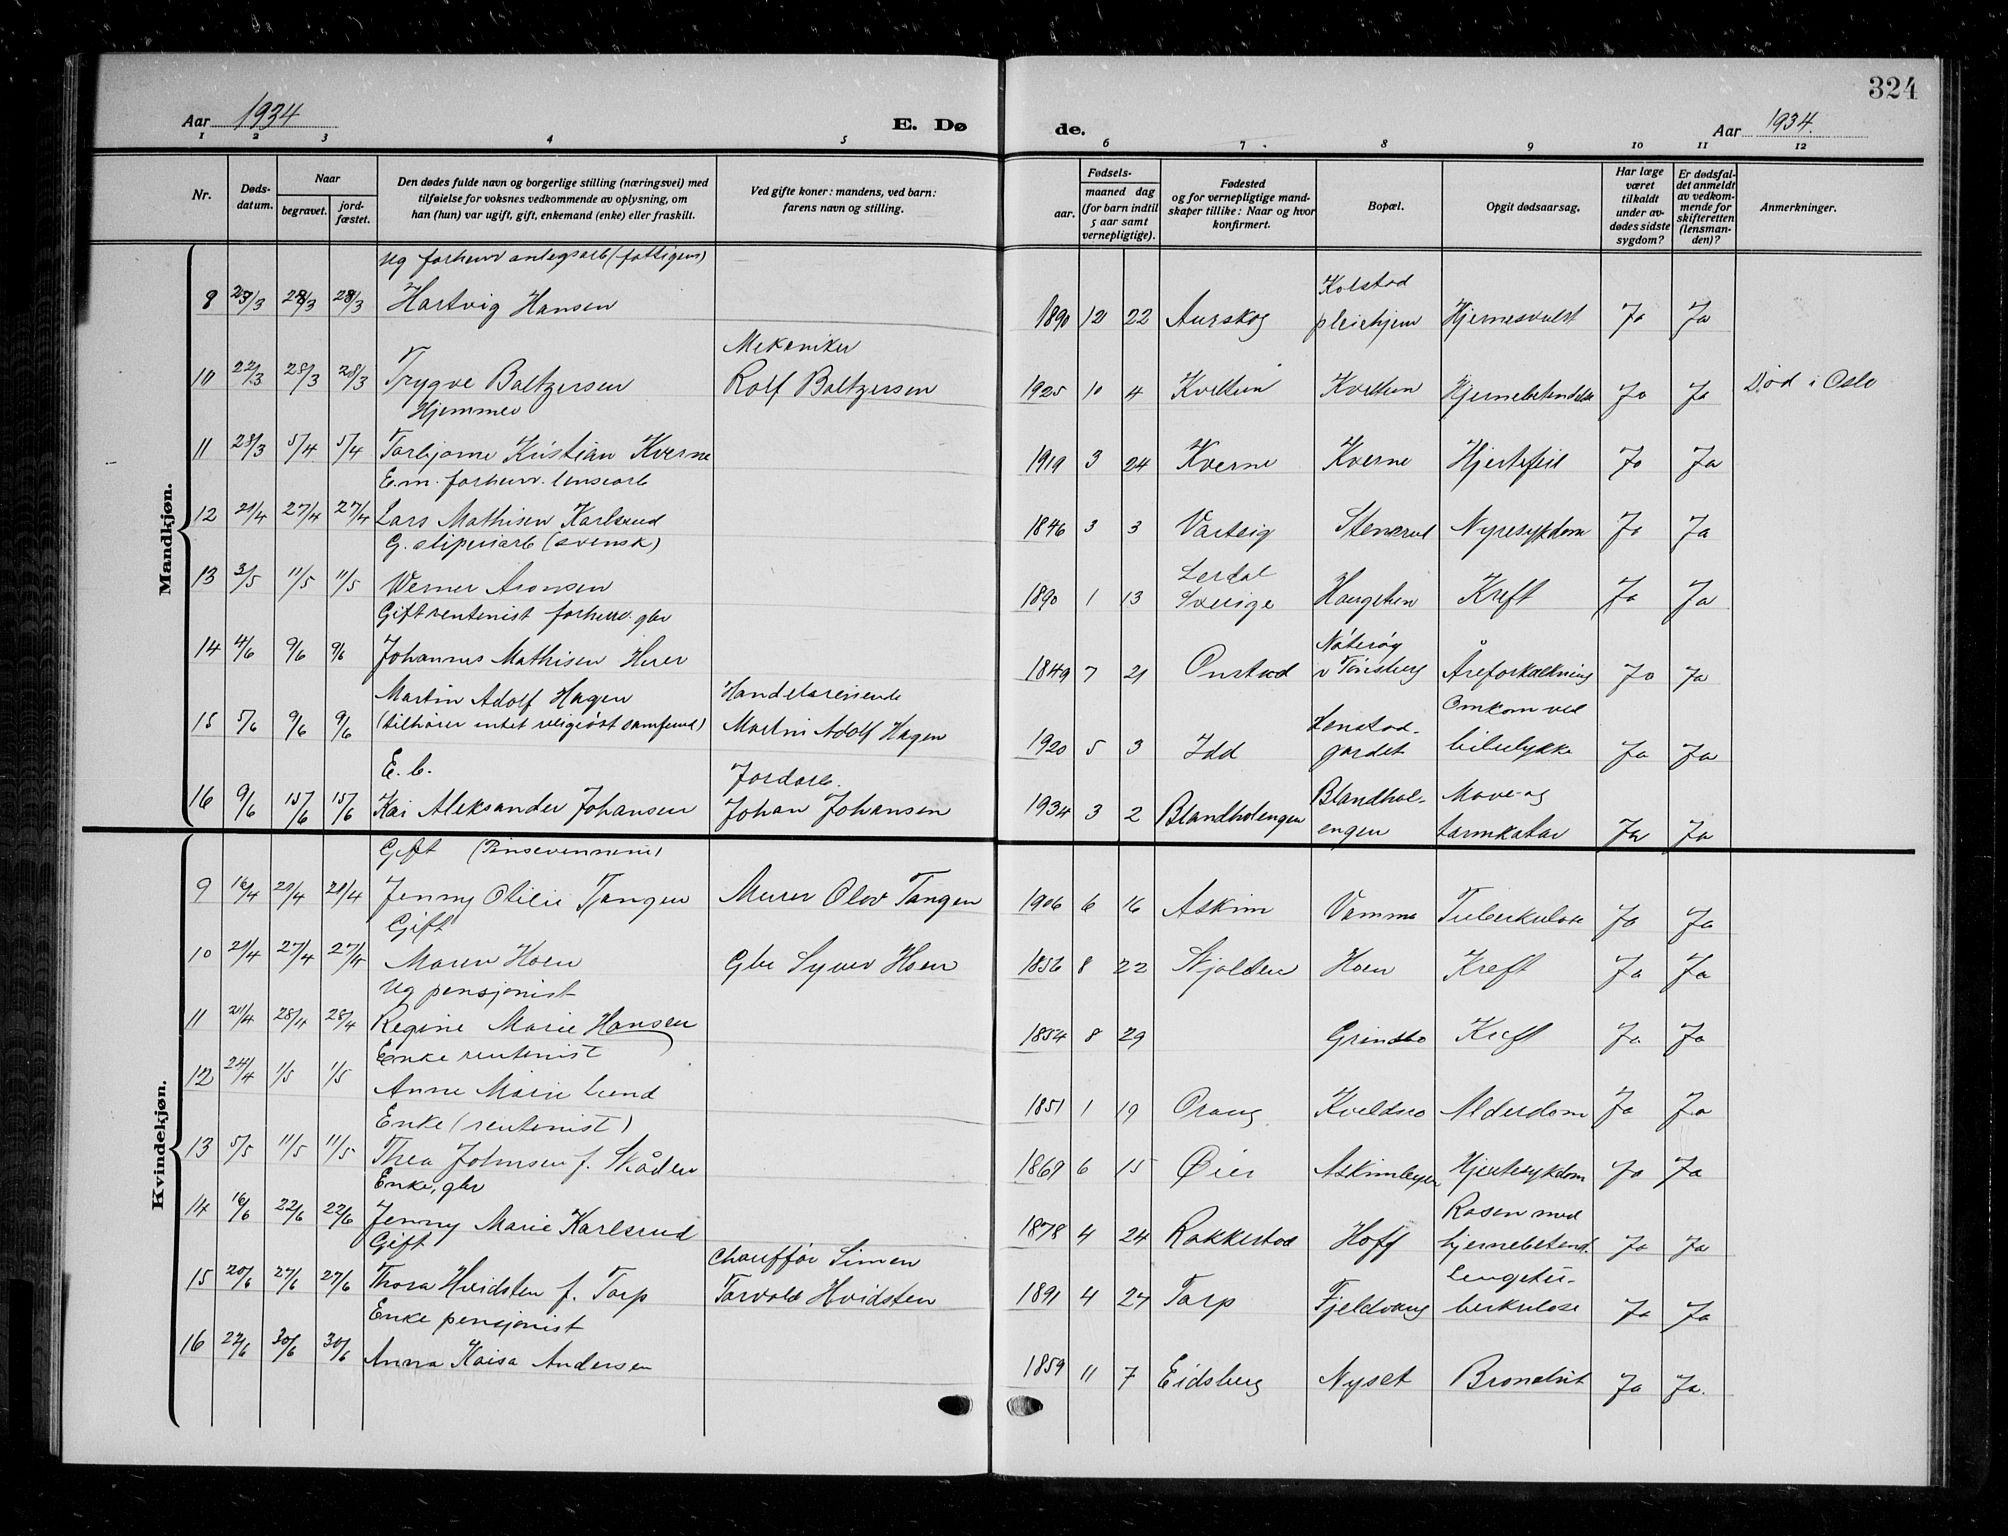 324
Aar 1934
E. Dø
de.
Aar 1934.
1 2 3 4 5 6 7 8 9 10 11 12
Nr.
Døds-
datum.
Naar
begravet.
jord-
fæstet.
Den dødes fulde navn og borgerlige stilling (næringsvei) med
tilføielse for voksnes vedkommende av oplysning, om
han (hun) var ugift, gift, enkemand (enke) eller fraskilt.
Ved gifte koner: mandens, ved barn:
farens navn og stilling.
Fødsels-
aar.
maaned dag
(for barn indtil
5 aar samt
vernepligtige).
Fødested
og for vernepligtige mand-
skaper tillike: Naar og hvor
konfirmert.
Bopæl.
Opgit dødsaarsag.
Har læge
været
tilkaldt
under av-
dødes sidste
sygdom?
Er dødsfal-
det anmeldt
av vedkom-
mende for
skifteretten
(lensman-
den)?
Anmerkninger.
Mandkjøn.
Ug forhenv anlegsarb (fattigens)
Kolstad
28/3 Hartvig Hansen 1890 12 22 Aurskog pleiehjem Hjernesvulst Ja Ja
Mekaniker
10 22/3 28/3 28/3 Trygve Baltzersen Rolf Baltzersen 1925 10 4 Kveltun Kveltun Hjernebetendelse Ja Ja Død i Oslo
Hjemmev
11 28/3 5/4 5/4 Torbjørne Kristian Kverne 1919 3 24 Kverne Kverne Hjertefeil Ja Ja
E.m. forhenv. lensearb
12 21/4 27/4 27/4 Lars Mathisen Karlsrud 1846 3 3 Varteig Stenerud Nyresykdom Ja Ja
G. sliperiarb (svensk)
Lerdal
13 3/5 11/5 11/5 Werner Aronsen 1890 1 13 Sverige Haugsten Kreft Ja Ja
Gift rentenist forhenv. gbr
Nøterøy
14 4/6 9/6 9/6 Johannes Mathisen Herer 1849 7 21 Onstad v Tønsberg Åreforkalkning Ja Ja
Martin Adolf Hagen Handelsreisende Omkom ved
15 5/6 9/6 9/6 (tilhører intet religiøst samfund) Martin Adolf Hagen 1920 5 3 Idd Henstad-
gardet bilulykke Ja Ja
E. b. Jordarb.
16 9/6 15/6 15/6 Kai Aleksander Johansen Johan Johansen 1934 3 2 Blandholengen Blandhol-
engen Mave- og
tarmkatar Ja Ja
Kvindekjøn.
Gift (Pinsevennene)
9 16/4 21/4 21/4 Jenny Otilie Tangen Murer Olov Tangen 1906 6 16 Askim Vamma Tuberkulose Ja Ja
Gift
10 21/4 27/4 27/4 Maren Hoen Gbr Syver Hoen 1856 8 22 Skjolden Hoen Kreft Ja Ja
Ug pensjonist
11 28/4 28/4 Regine Marie Hansen 1854 8 29 Grindbo Kreft Ja Ja
Enke rentenist
12 24/4 1/5 1/5 Anne Marie Lund 1851 1 19 Kveldsro Alderdom Ja Ja
Enke (rentenist)
13 5/5 11/5 11/5 Thea Johnsen f. Skåden 1869 6 15 Øier Askimbyen Hjertesykdom Ja Ja
Enke, gbr
Rosen med
14 16/6 22/6 22/6 Jenny Marie Karlsrud 1878 4 24 Rakkestad Hoff hjernebetend. Ja Ja
Gift Chauffør Simen Lungetu-
15 20/6 27/6 27/6 Thora Hvidsten f. Torp Torvald Hvidsten 1891 4 24 Torp Fjeldvang berkulose Ja Ja
Enke pensjonist
16 30/6 30/6 Anna Kaisa Andersen 1859 11 7 Eidsberg Nyset Bronchit Ja Ja.